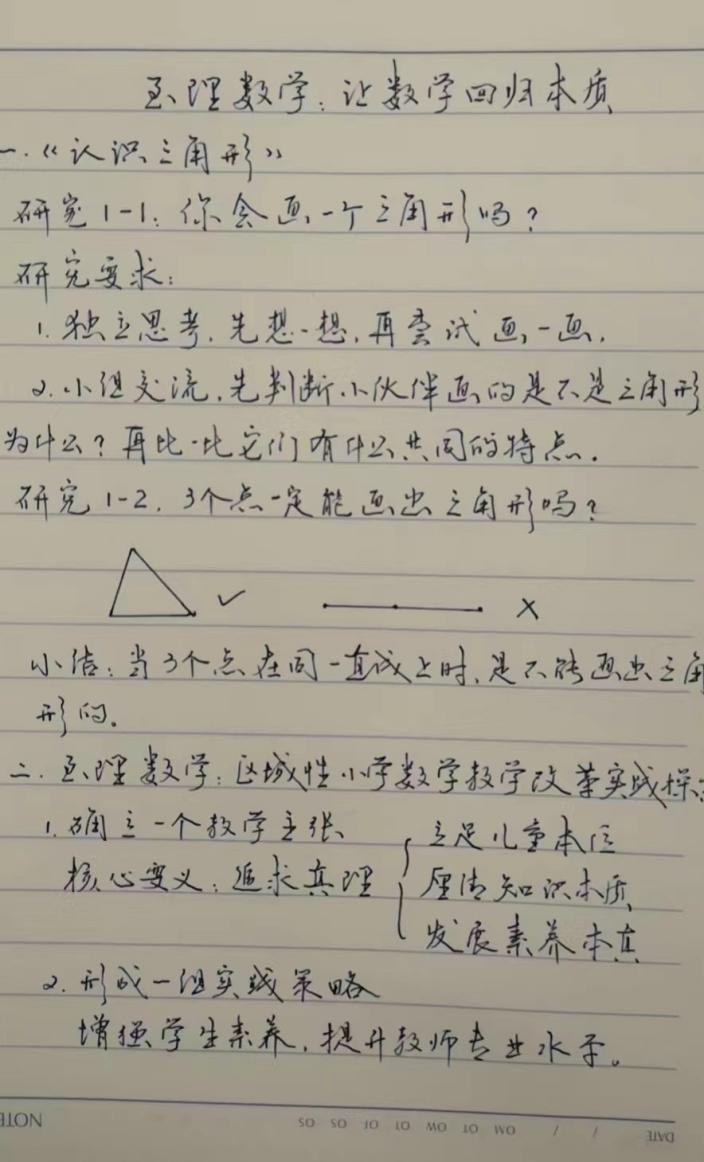 至理数学：让数学回归本质
一.《认识三角形》
研究1-1：你会画一个三角形吗？
研究要求：
1.独立思考，先想一想，再尝试画一画.
2.小组交流，先判断小伙伴画的是不是三角形
为什么？再比一比它们有什么共同的特点.
研究1-2. 3个点一定能画出三角形吗？
✓ ×
小结：当3个点在同一直线上时，是不能画出三角
形的。
二.至理数学：区域性小学数学教学改革实践探
1.确立一个教学主张
核心要义：追求真理
立足儿童本位
厘清知识本质
发展素养本真
2.形成一组实践策略
增强学生素养，提升教师专业水平。
NOTE
DATE / /